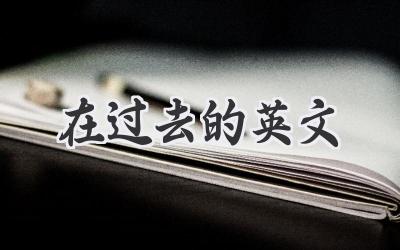 在过去的英文